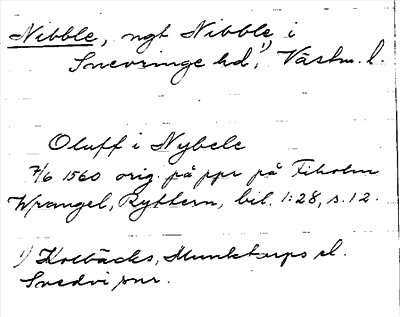 Nibble, ngt Nibble i
Snevringe hd,¹) Västm. l.
Oluff i Nybele
7/6 1560 orig. på ppr på Tidö
Wrangel, Ryttern, bil. 1:28, s. 12.
1) Kolbäcks, Munktorps el.
Svedvi snr.